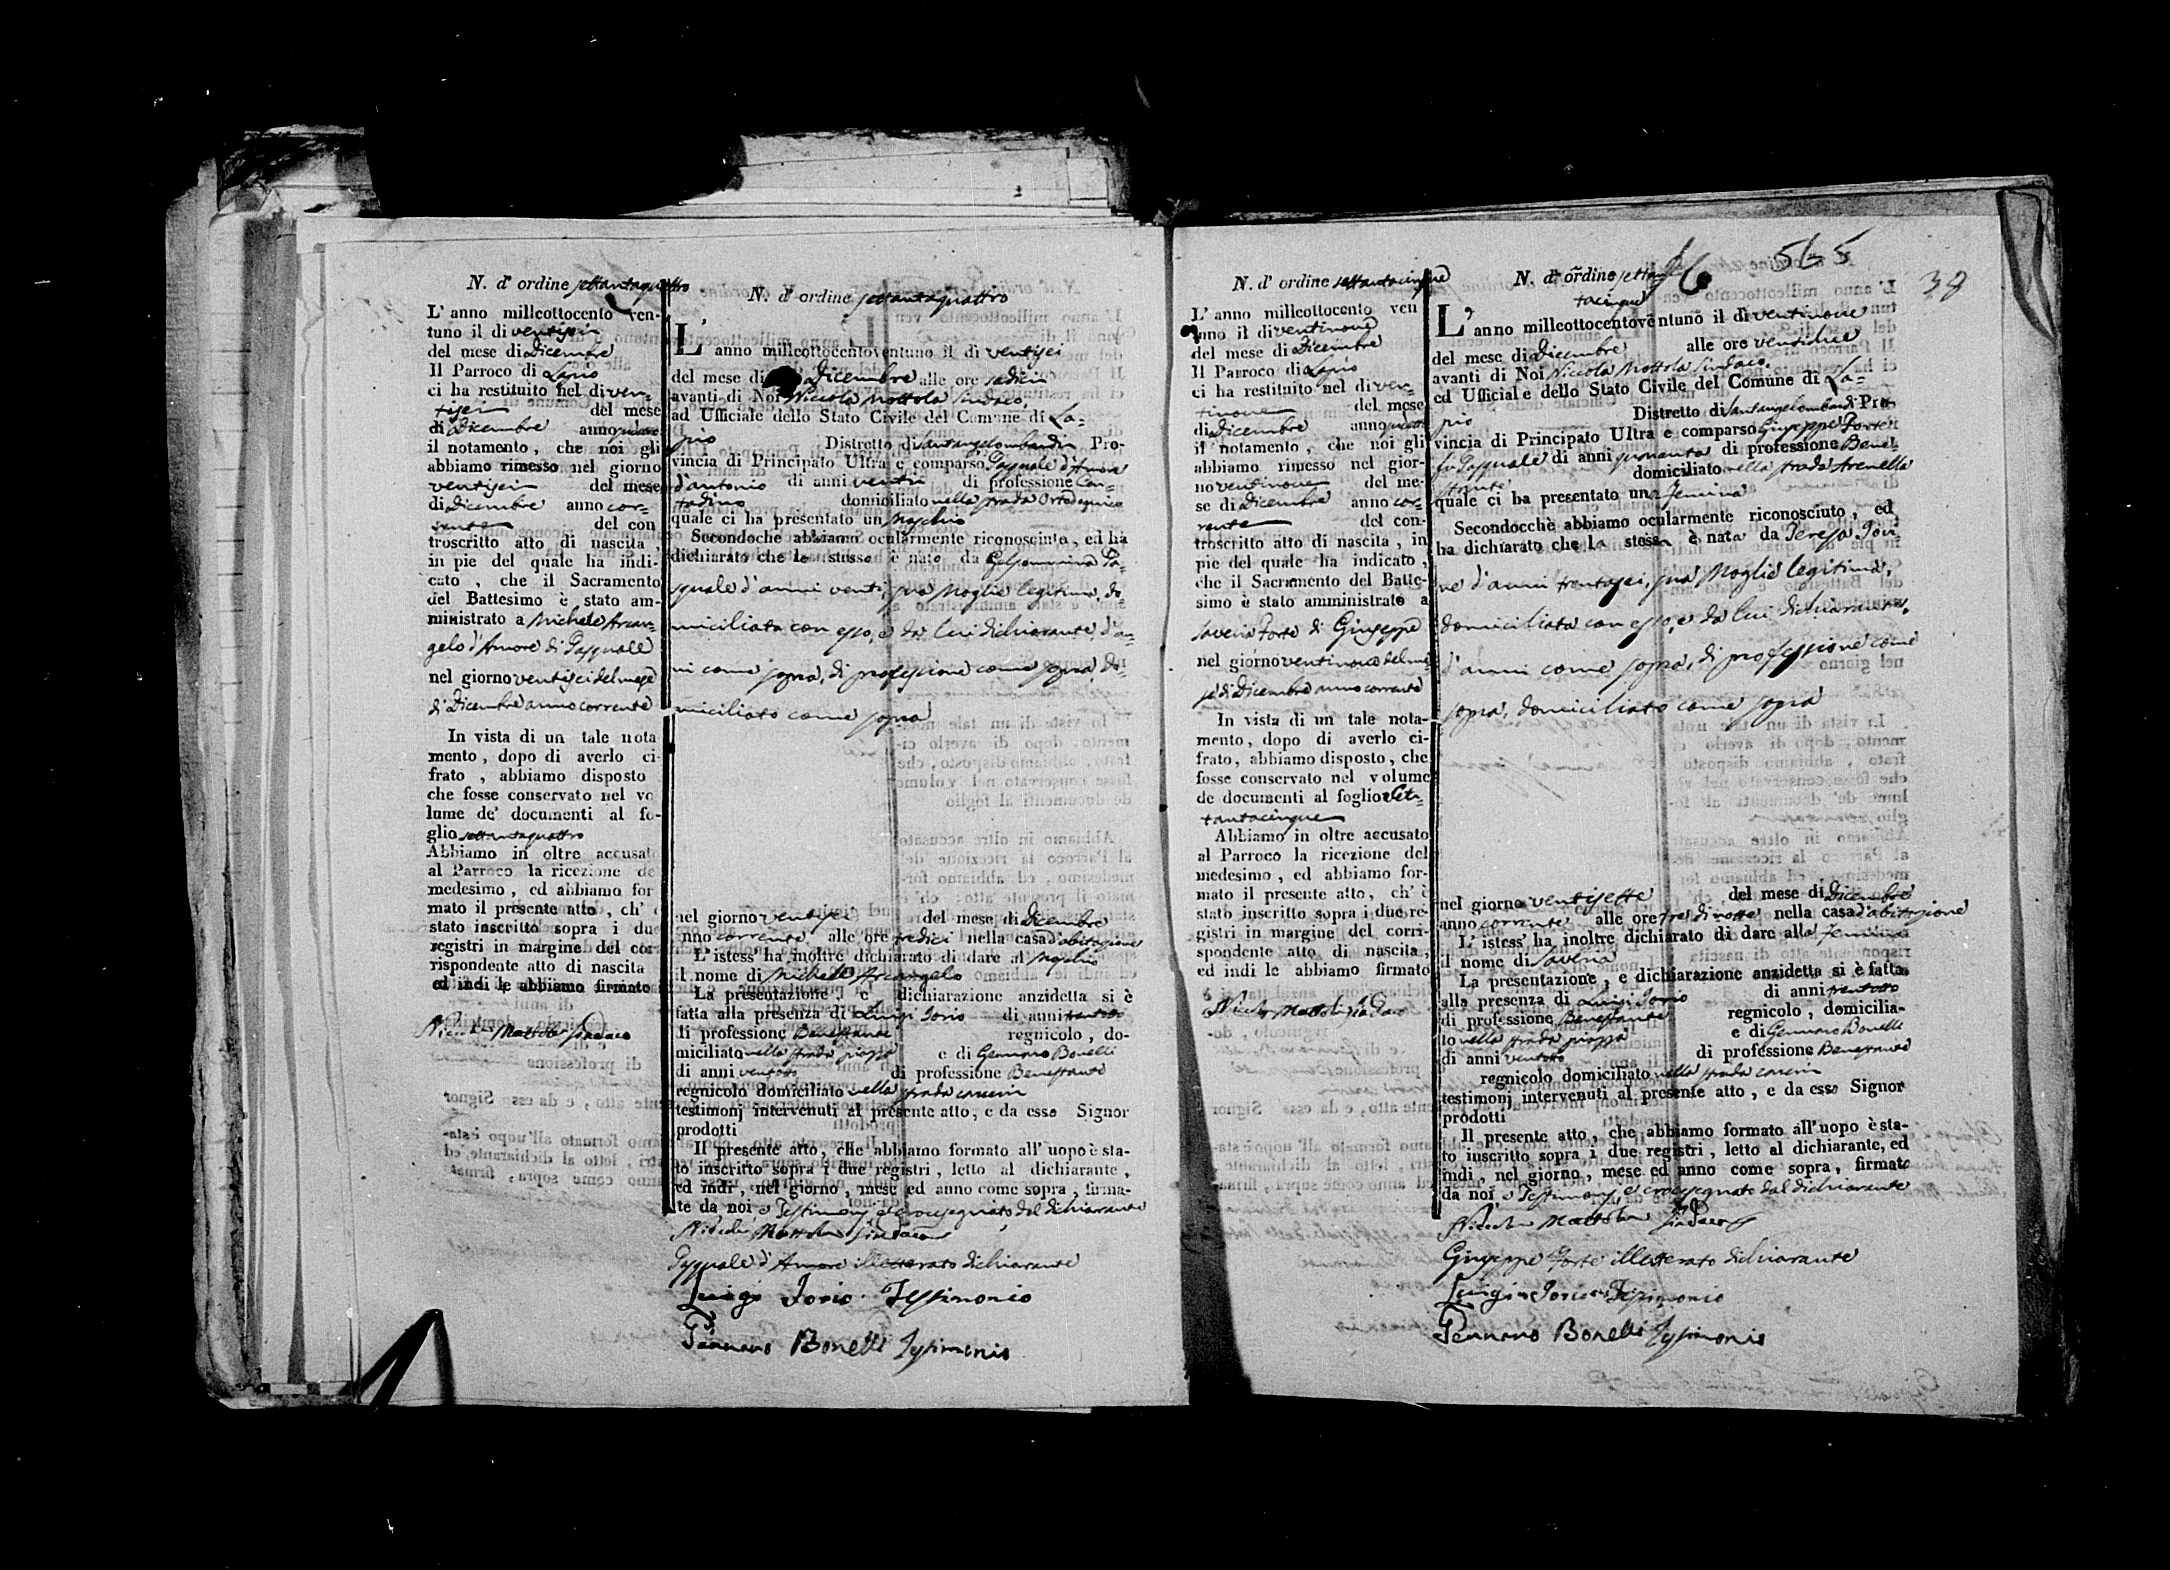 N. d' ordine settantaquattro
L' anno milleottocento ven-
tuno il di ventisei
del mese di Dicembre
Il Parroco di Lapio
ci ha restituito nel di ven-
tisei del mese
di Dicembre anno
il notamento , che noi gli
abbiamo rimesso nel giorno
ventisei del mese
di Dicembre anno cor-
rente del con
troscritto atto di nascita ,
in pie del quale ha indi-
cato , che il Sacramento
del Battesimo è stato am-
ministrato a Michele Arcan-
gelo d'Amore di Pasquale
nel giorno ventisei del mese
di Dicembre anno corrente
In vista di un tale nota
mento, dopo di averlo ci-
frato , abbiamo disposto
che fosse conservato nel vo
lume de' documenti al fo-
glio settantaquattro
Abbiamo in oltre accusato
al Parroco la ricezione de
medesimo , ed abbiamo for
mato il presente atto , ch' è
stato inscritto sopra i due
registri in margine del cor
rispondente atto di nascita
ed indi le abbiamo firmato
Nicola Mottola Sindaco
N. d' ordine settantaquattro
L' anno milleottocentoventuno il di ventisei
del mese di Dicembre alle ore sedici
avanti di Noi Niccola Mottola Sindaco,
ad Ufficiale dello Stato Civile del Comune di La-
pio Distretto di Santangelombardi Pro-
vincia di Principato Ultra e comparso Pasquale d'Amore
d'antonio di anni ventri di professione Con-
tadino domiciliato nella strada Ortodomnico
quale ci ha presentato un Maschio
Secondoche abbiamo ocularmente riconosciuto, ed ha
dichiarato che lo stesso è nato da Gelsomina Pa-
squale d'anni venti, sua Moglie legitima, do
miciliata con esso, e da lui dichiarante d'an-
ni come sopra, di professione come sopra, do-
miciliato come sopra
nel giorno ventisei del mese di Dicembre
nno corrente alle ore tredici nella casa d'abitazione
L' istess' ha inoltre dichiarato di dare al Maschio
il nome di Michele Arcangelo
La presentazione , e dichiarazione anzidetta si è
fatta alla presenza di Luigi Iorio di anni trentotto
di professione Benestante regnicolo , do-
miciliato nella strada piazza e di Gennaro Bonelli
di anni ventotto di professione Benestante
regnicolo domiciliato nella strada
testimonj intervenuti al presente atto, e da esso Signor
prodotti
Il presente atto , che abbiamo formato all' uopo è sta-
to inscritto sopra i due registri , letto al dichiarante ,
ed indi , nel giorno , mese ed anno come sopra , firma-
te da noi e Testimonj, e crocesegnato dal dichiarante
Nicola Mottola Sindaco
Pasquale d'Amore illetterato dichiarante
Luigi Iorio Testimonio
Gennaro Bonelli Testimonio
N. d' ordine settantacinque
L' anno milleottocento ven
tuno il di ventinove
del mese di Dicembre
Il Parroco di Lapio
ci ha restituito nel di ven-
tinove del mese
di Dicembre anno
il notamento , che noi gli
abbiamo rimesso nel gior-
no ventinove del me-
se di Dicembre anno cor-
rente del con-
troscritto atto di nascita , in
pie del quale ha indicato ,
che il Sacramento del Batte-
simo è stato amministrato a
Saveria Forte di Giuseppe
nel giorno ventinove del me-
se di Dicembre anno corrente
In vista di un tale nota-
mento, dopo di averlo ci-
frato, abbiamo disposto, che
fosse conservato nel volume
de documenti al foglio Set-
tantacinque
Abbiamo in oltre accusato
al Parroco la ricezione del
medesimo, ed abbiamo for-
mato il presente atto, ch' è
stato inscritto sopra i due re-
gistri in margine del corri-
spondente atto di nascita,
ed indi le abbiamo firmato
Nicola Mottola Sindaco
565
38
N. d' ordine settan-
tacinque
L' anno milleottocentoventuno il di ventinove
del mese di Dicembre alle ore ventidue
avanti di Noi Niccola Mottola Sindaco
ed Ufficiale dello Stato Civile del Comune di La-
pio Distretto di Santangelombardi Pro-
vincia di Principato Ultra e comparso Giuseppe Forte
fu Pasquale di anni quaranta di professione Bene-
stante domiciliato nella strada Arenella
quale ci ha presentato una Femina
Secondocchè abbiamo ocularmente riconosciuto, ed
ha dichiarato che la stessa è nata da Teresa Iovi-
ne d'anni trentasei, sua Moglie legitima,
domiciliata con esso, e da lui dichiarante,
d'anni come sopra, di professione come
sopra, domiciliato come sopra
nel giorno ventisette del mese di Dicembre
anno corrente alle ore tre di notte nella casa d'abitazione
L' istess' ha inoltre dichiarato di dare alla femina
il nome di Saveria
La presentazione , e dichiarazione anzidetta si è fatta
alla presenza di Luigi Iorio di anni trentotto
di professione Benestante regnicolo , domicilia-
to nella strada piazza e di Gennaro Bonelli
di anni ventotto di professione Benestante
regnicolo domiciliato nella strada
testimonj intervenuti al presente atto , e da esso Signor
prodotti
Il presente atto, che abbiamo formato all'uopo è sta-
to inscritto sopra i due registri , letto al dichiarante, ed
indi , nel giorno, mese ed anno come sopra, firmato
da noi e Testimonj, e crocesegnato dal dichiarante
Nicola Mottola Sindaco
Giuseppe Forte illetterato dichiarante
Luigi Iorio Testimonio
Gennaro Bonelli Testimonio